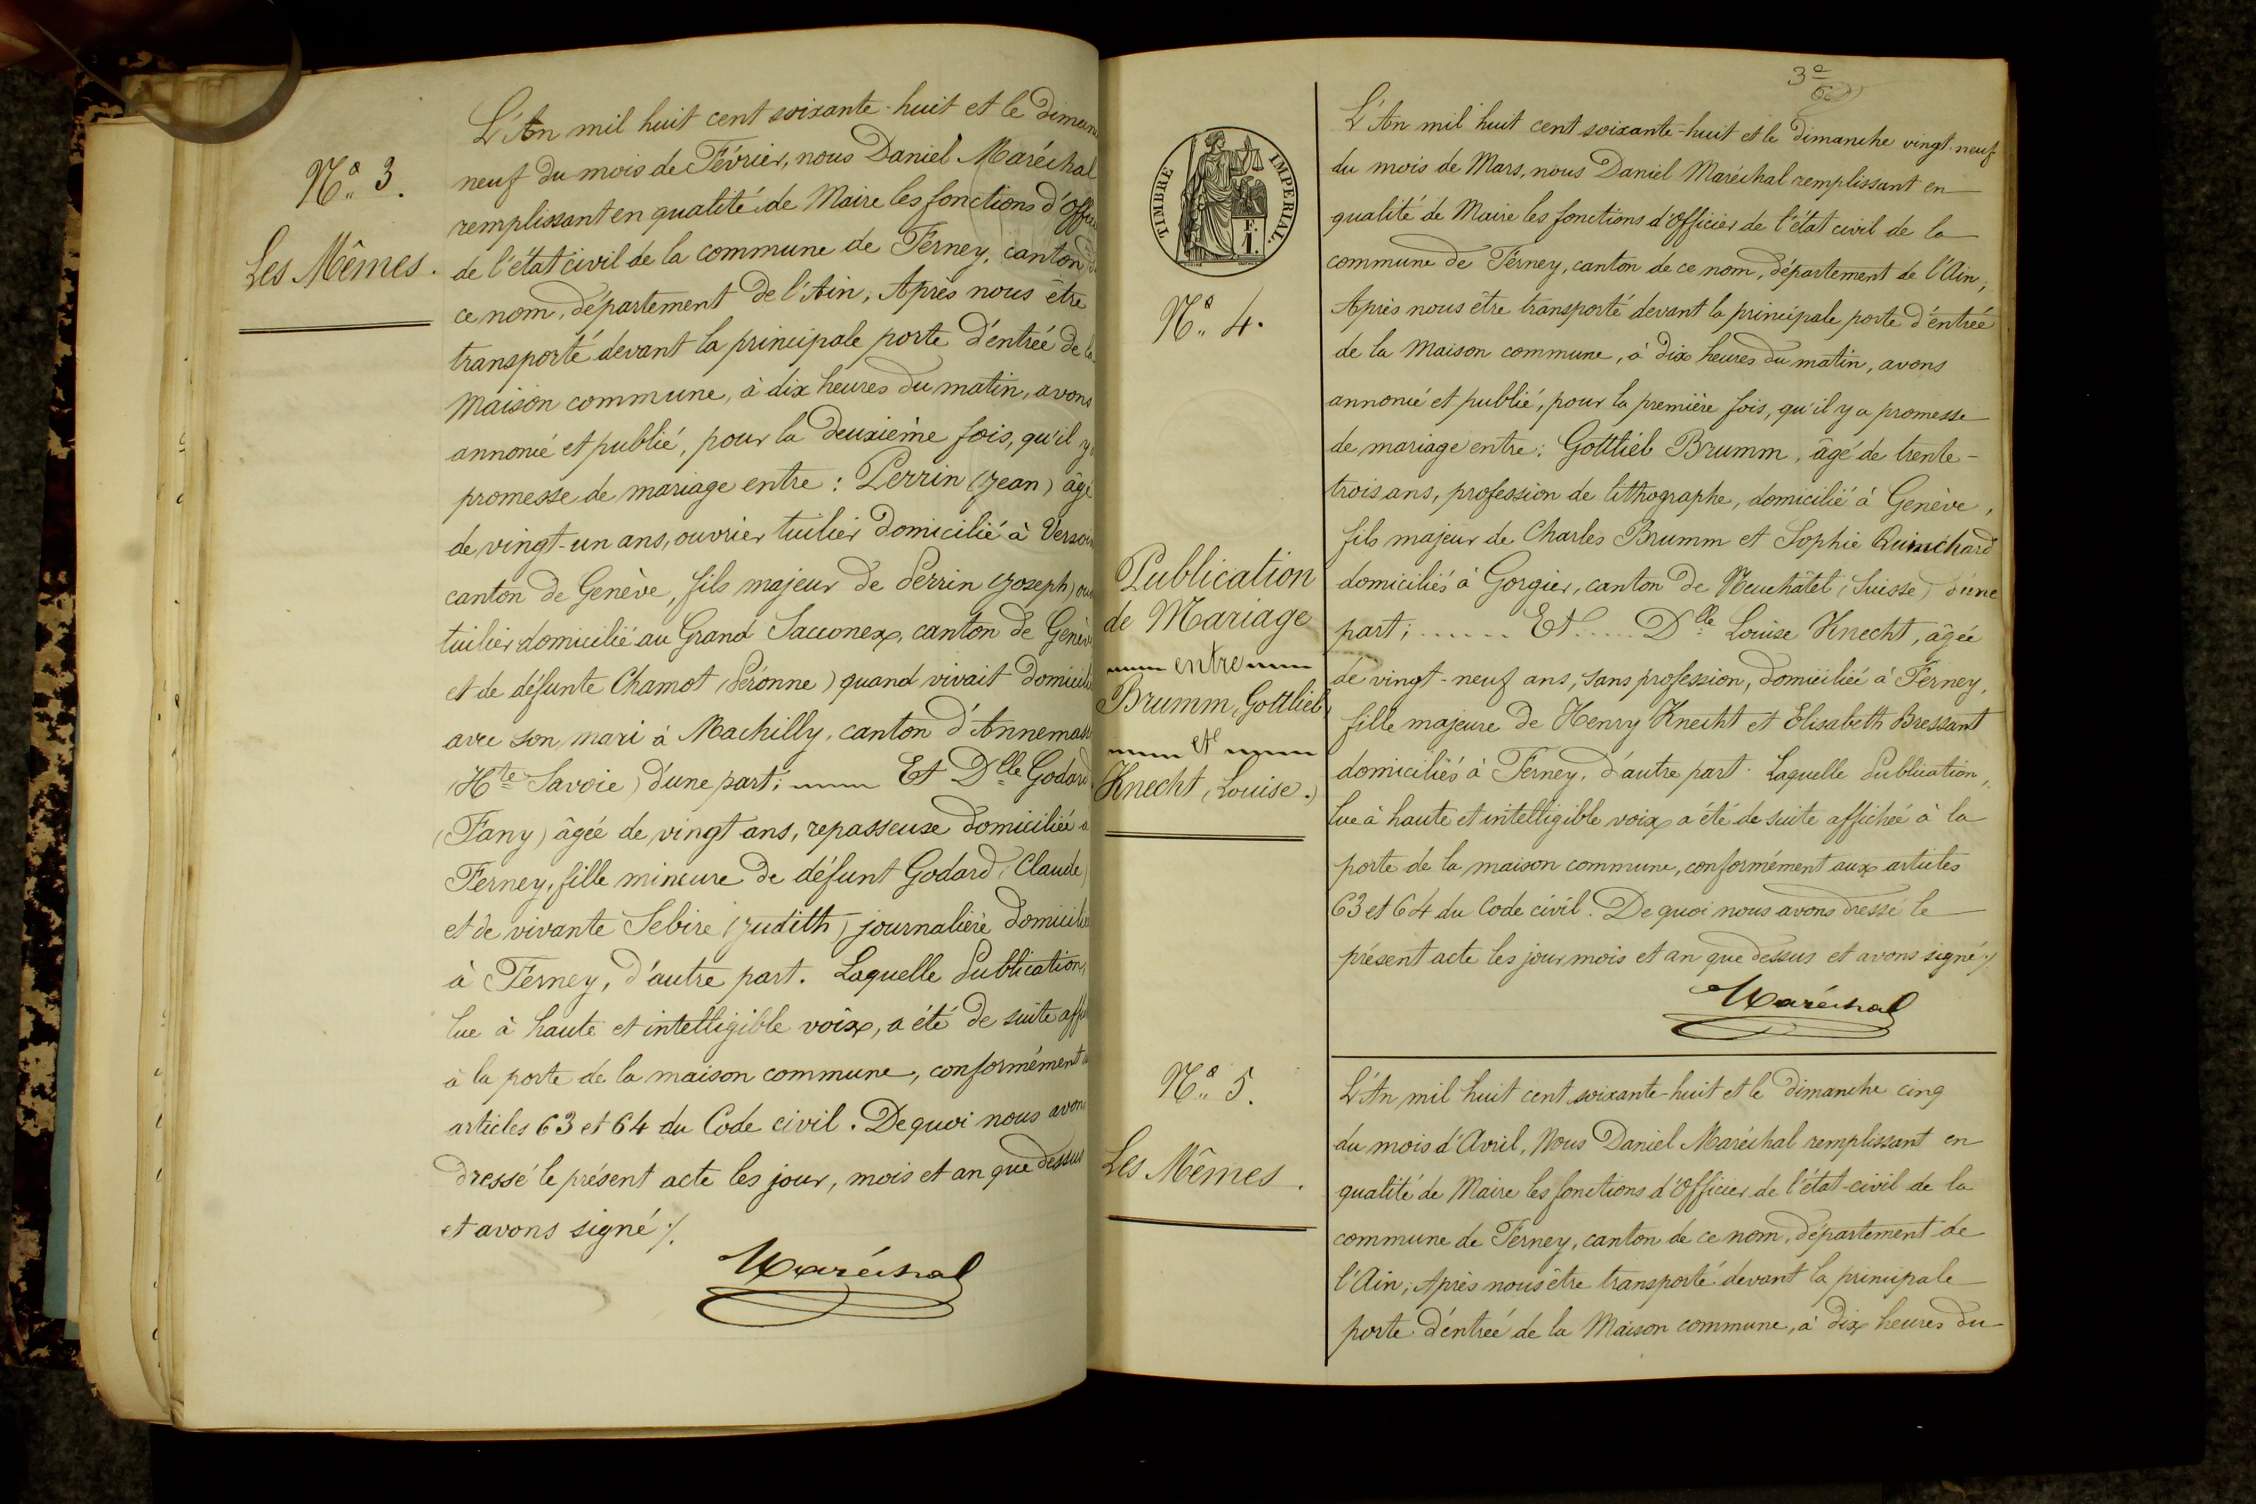 N.º 3.
Les Mêmes.
L'An mil huit cent soixante-huit et le diman
neuf du mois de Février, nous Daniel Maréchal
remplissant en qualité de Maire les fonctions d'Offic
de l'état civil de la commune de Ferney, canton de
ce nom, département de l'Ain; Après nous être
transporté devant la principale porte d'entrée de la
Maison commune, à dix heures du matin, avons
annoncé et publié, pour la deuxième fois, qu'il y a
promesse de mariage entre : Perrin (Jean) âgé
de vingt-un ans, ouvrier tuilier domicilié à Versoix
canton de Genève, fils majeur de Perrin (Joseph) ouv
tuilier domicilié au Grand Sacconex, canton de Genèv
et de défunte Chamot (Péronne) quand vivait domicili
avec son mari à Machilly, canton d'Annemass
(Hte Savoie) d'une part; Et Dlle Godard
(Fany) âgée de vingt ans, repasseuse domiciliée à
Ferney, fille mineure de défunt Godard (Claude)
et de vivante Sebire (Judith) journalière domicilié
à Ferney, d'autre part. Laquelle Publication,
lue à haute et intelligible voix, a été de suite affi
à la porte de la maison commune, conformément a
articles 63 et 64 du Code civil. De quoi nous avons
dressé le présent acte les jour, mois et an que dessus
et avons signé ./.
Maréchal
3e
TIMBRE IMPERIAL.
F. 1.
N.º 4.
Publication
de Mariage
entre
Brumm, Gottlieb,
et
Knecht (Louise.)
L'An mil huit cent soixante-huit et le dimanche vingt-neuf
du mois de Mars, nous Daniel Maréchal remplissant en
qualité de Maire les fonctions d'Officier de l'état civil de la
commune de Ferney, canton de ce nom, département de l'Ain;
Après nous être transporté devant la principale porte d'entrée
de la Maison commune, à dix heures du matin, avons
annoncé et publié, pour la première fois, qu'il y a promesse
de mariage entre : Gottlieb Brumm, âgé de trente-
trois ans, profession de lithographe, domicilié à Genève,
fils majeur de Charles Brumm et Sophie Quinchard
domiciliés à Gorgier, canton de Neuchâtel (Suisse) d'une
part; ...... Et ..... Dlle Louise Knecht, âgée
de vingt-neuf ans, sans profession, domiciliée à Ferney,
fille majeure de Henry Knecht et Elisabeth Bressant
domiciliés à Ferney, d'autre part. Laquelle Publication,
lue à haute et intelligible voix a été de suite affichée à la
porte de la maison commune, conformément aux articles
63 et 64 du Code civil. De quoi nous avons dressé le
présent acte les jour mois et an que dessus et avons signé ./.
Maréchal
N.º 5.
Les Mêmes.
L'An mil huit cent soixante-huit et le dimanche cinq
du mois d'Avril, Nous Daniel Maréchal remplissant en
qualité de Maire les fonctions d'Officier de l'état-civil de la
commune de Ferney, canton de ce nom, département de
l'Ain; Après nous être transporté devant la principale
porte d'entrée de la Maison commune, à dix heures du